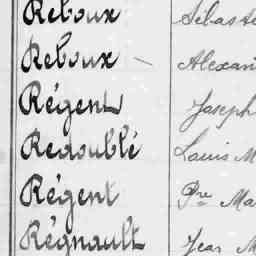 Reboux Sébasti
Reboux Alexan
Régent Joseph
Redoublé Louis M
Régent Pre Ma
Régnault Jean M